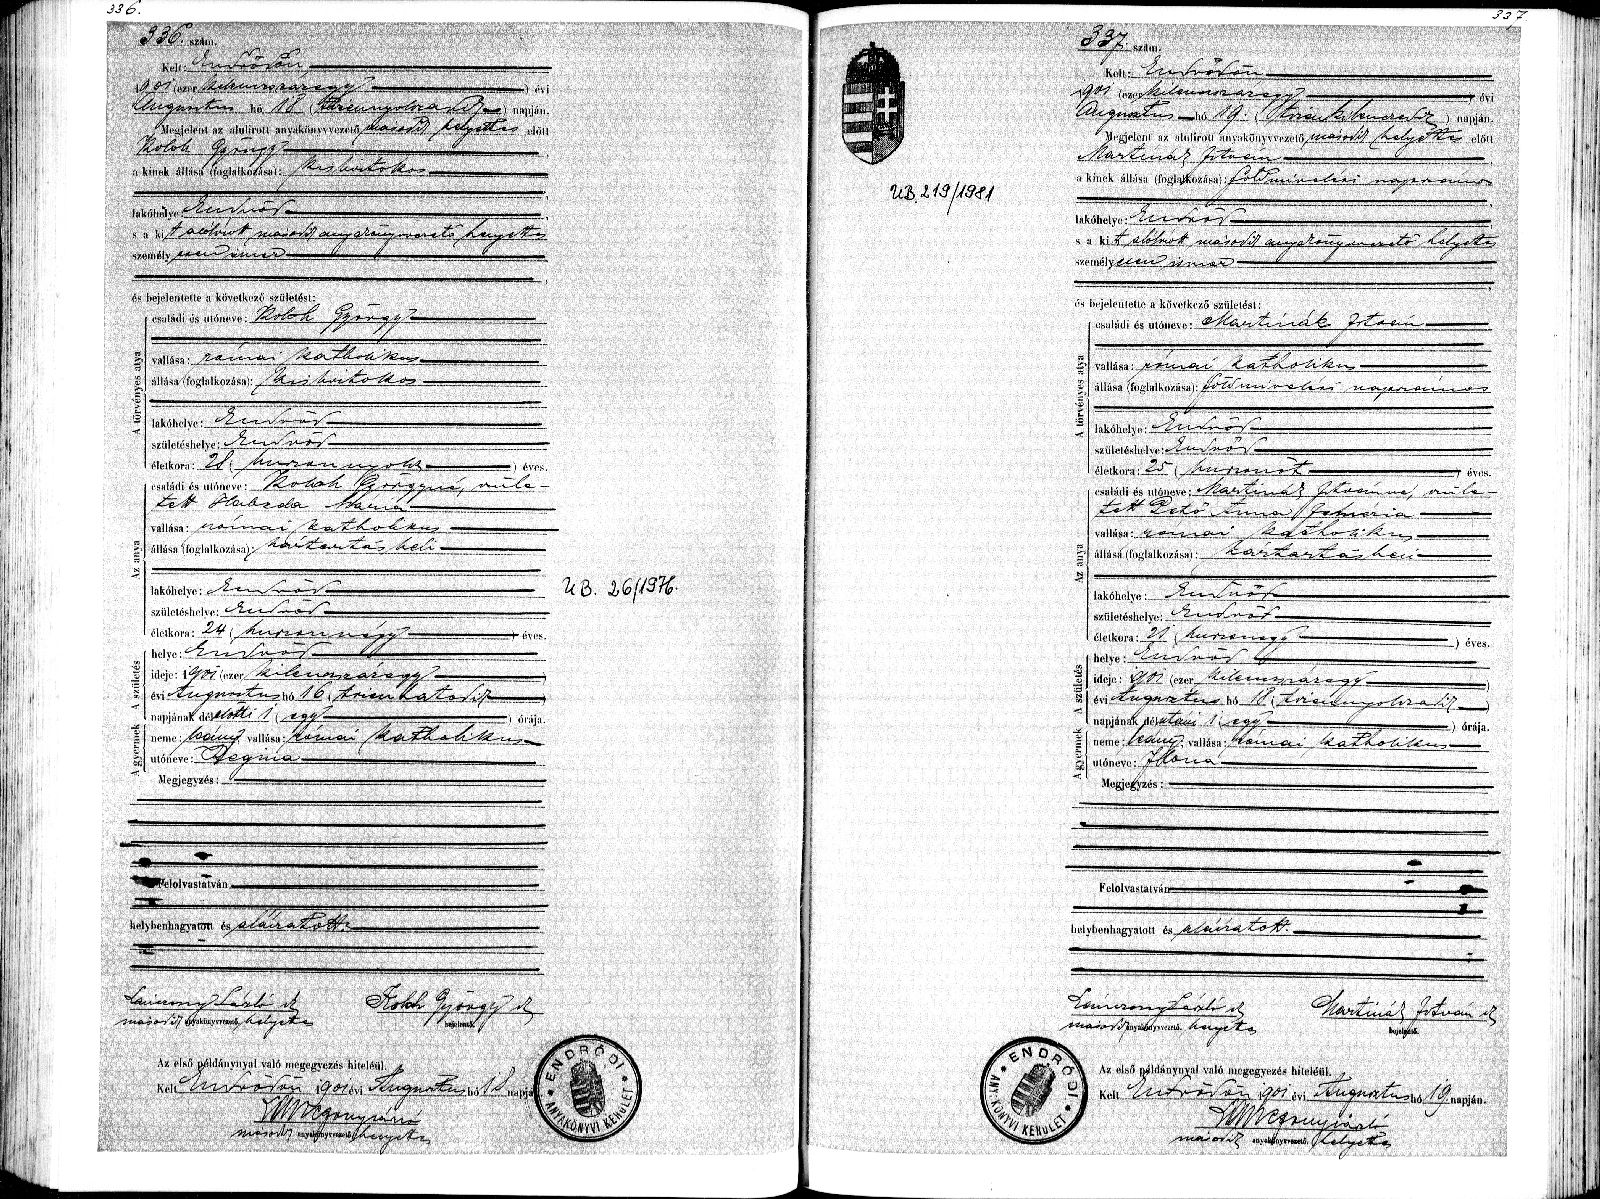 336.
336. szám.
Kelt: Endrődön,
1901 (ezer kilenczszázegy) évi
Augusztus hó 18 (tizennyolczadik) napján.
Megjelent az alulirott anyakönyvvezető második helyettes előtt
Koloh György
a kinek állása (foglalkozása): kisbirtokos
lakóhelye: Endrőd
s a kit alólirott második anyakönyvvezető helyettes
személyesen ismer
és bejelentette a következő születést:
A törvényes atya
családi és utóneve: Koloh György
vallása: római katholikus
állása (foglalkozása): kisbirtokos
lakóhelye: Endrőd
születéshelye: Endrőd
életkora: 28 (huszonnyolcz) éves.
Az anya
családi és utóneve: Koloh Györgyné, szüle-
tett Mária
vallása: római katholikus
állása (foglalkozása): háztartásbeli
lakóhelye: Endrőd
születéshelye: Endrőd
életkora: 24 (huszonnégy) éves.
A születés
helye: Endrőd
ideje: 1901 (ezer kilenczszázegy)
évi Augusztus hó 16 (tizenhatodik)
napjának délelőtti 1 (egy) órája.
A gyermek
neme: leány; vallása: római katholikus
utóneve: Regina
Megjegyzés:
Felolvastatván
helybenhagyatott és aláiratott.
László h Koloh György
második anyakönyvvezető helyettes bejelentő.
Az első példánynyal való megegyezés hiteléül.
Kelt Endrődön 1901 évi Augusztus hó 18 napján
második anyakönyvvezető helyettes
ENDRŐDI ANYAKÖNYVI KERÜLET
UB. 26/1976.
337.
337. szám.
UB. 219/1981
Kelt: Endrődön
1901 (ezer kilenczszázegy) évi
Augusztus hó 19. (tizenkilenczedik) napján.
Megjelent az alulirott anyakönyvvezető második helyettes előtt
Martinák István
a kinek állása (foglalkozása): földmivelési napszámos
lakóhelye: Endrőd
s a kit alólirott második anyakönyvvezető helyettes
személyesen ismer
és bejelentette a következő születést:
A törvényes atya
családi és utóneve: Martinák István
vallása: római katholikus
állása (foglalkozása): földmivelési napszámos
lakóhelye: Endrőd
születéshelye: Endrőd
életkora: 25 (huszonöt) éves.
Az anya
családi és utóneve: Martinák Istvánné, szüle-
tett Anna
vallása: római katholikus
állása (foglalkozása): háztartásbeli
lakóhelye: Endrőd
születéshelye: Endrőd
életkora: 21 (huszonegy) éves.
A születés
helye: Endrőd
ideje: 1901 (ezer kilenczszázegy)
évi Augusztus hó 18 (tizennyolczadik)
napjának délutáni 1 (egy) órája.
A gyermek
neme: leány; vallása: római katholikus
utóneve: Ilona
Megjegyzés:
Felolvastatván
helybenhagyatott és aláiratott.
László h Martinák István
második anyakönyvvezető helyettes bejelentő.
Az első példánynyal való megegyezés hiteléül.
Kelt Endrődön 1901 évi Augusztus hó 19 napján.
második anyakönyvvezető helyettes
ENDRŐDI ANYAKÖNYVI KERÜLET